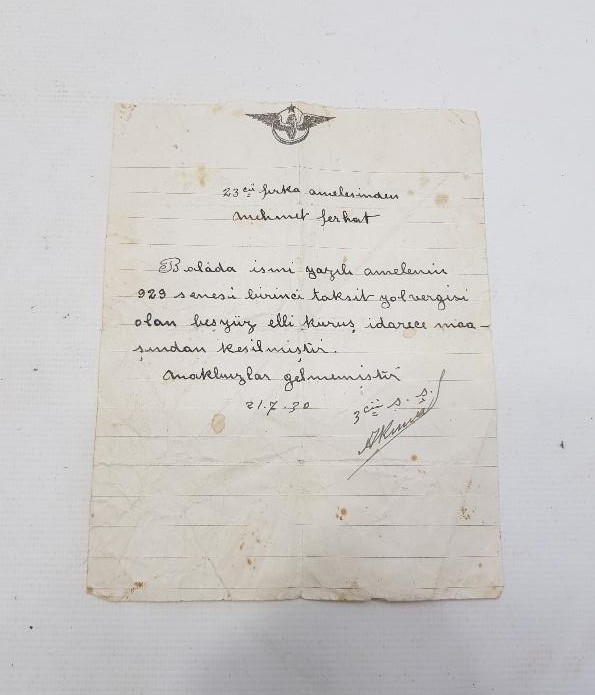 23 cü fırka amelesinden
Mehmet Ferhat
Balâda ismi yazılı amelenin
929 senesi birinci taksit yolvergisi
olan beşyüz elli kuruş idarece maa-
şından kesilmiştir.
Makbuzlar gelmemiştir
21.7.30
3 cü ş. ş.